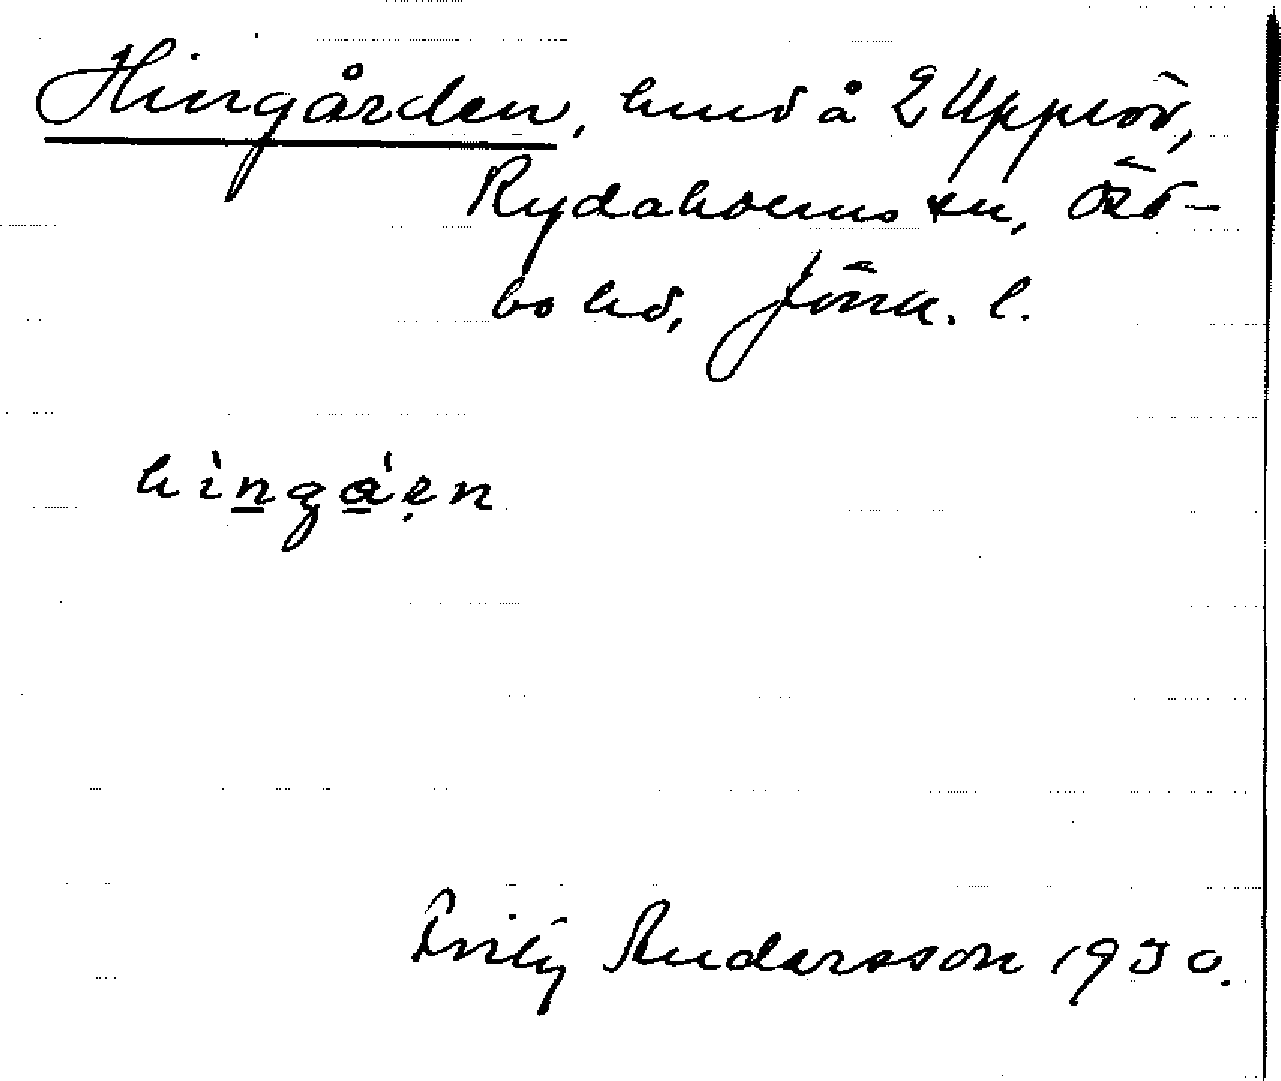 Hingården, hmd å 2 Upplöv,
Rydaholms sn, Öst-
bo hd, Jönk. l.
hìngáen
Frity Andersson 1930.